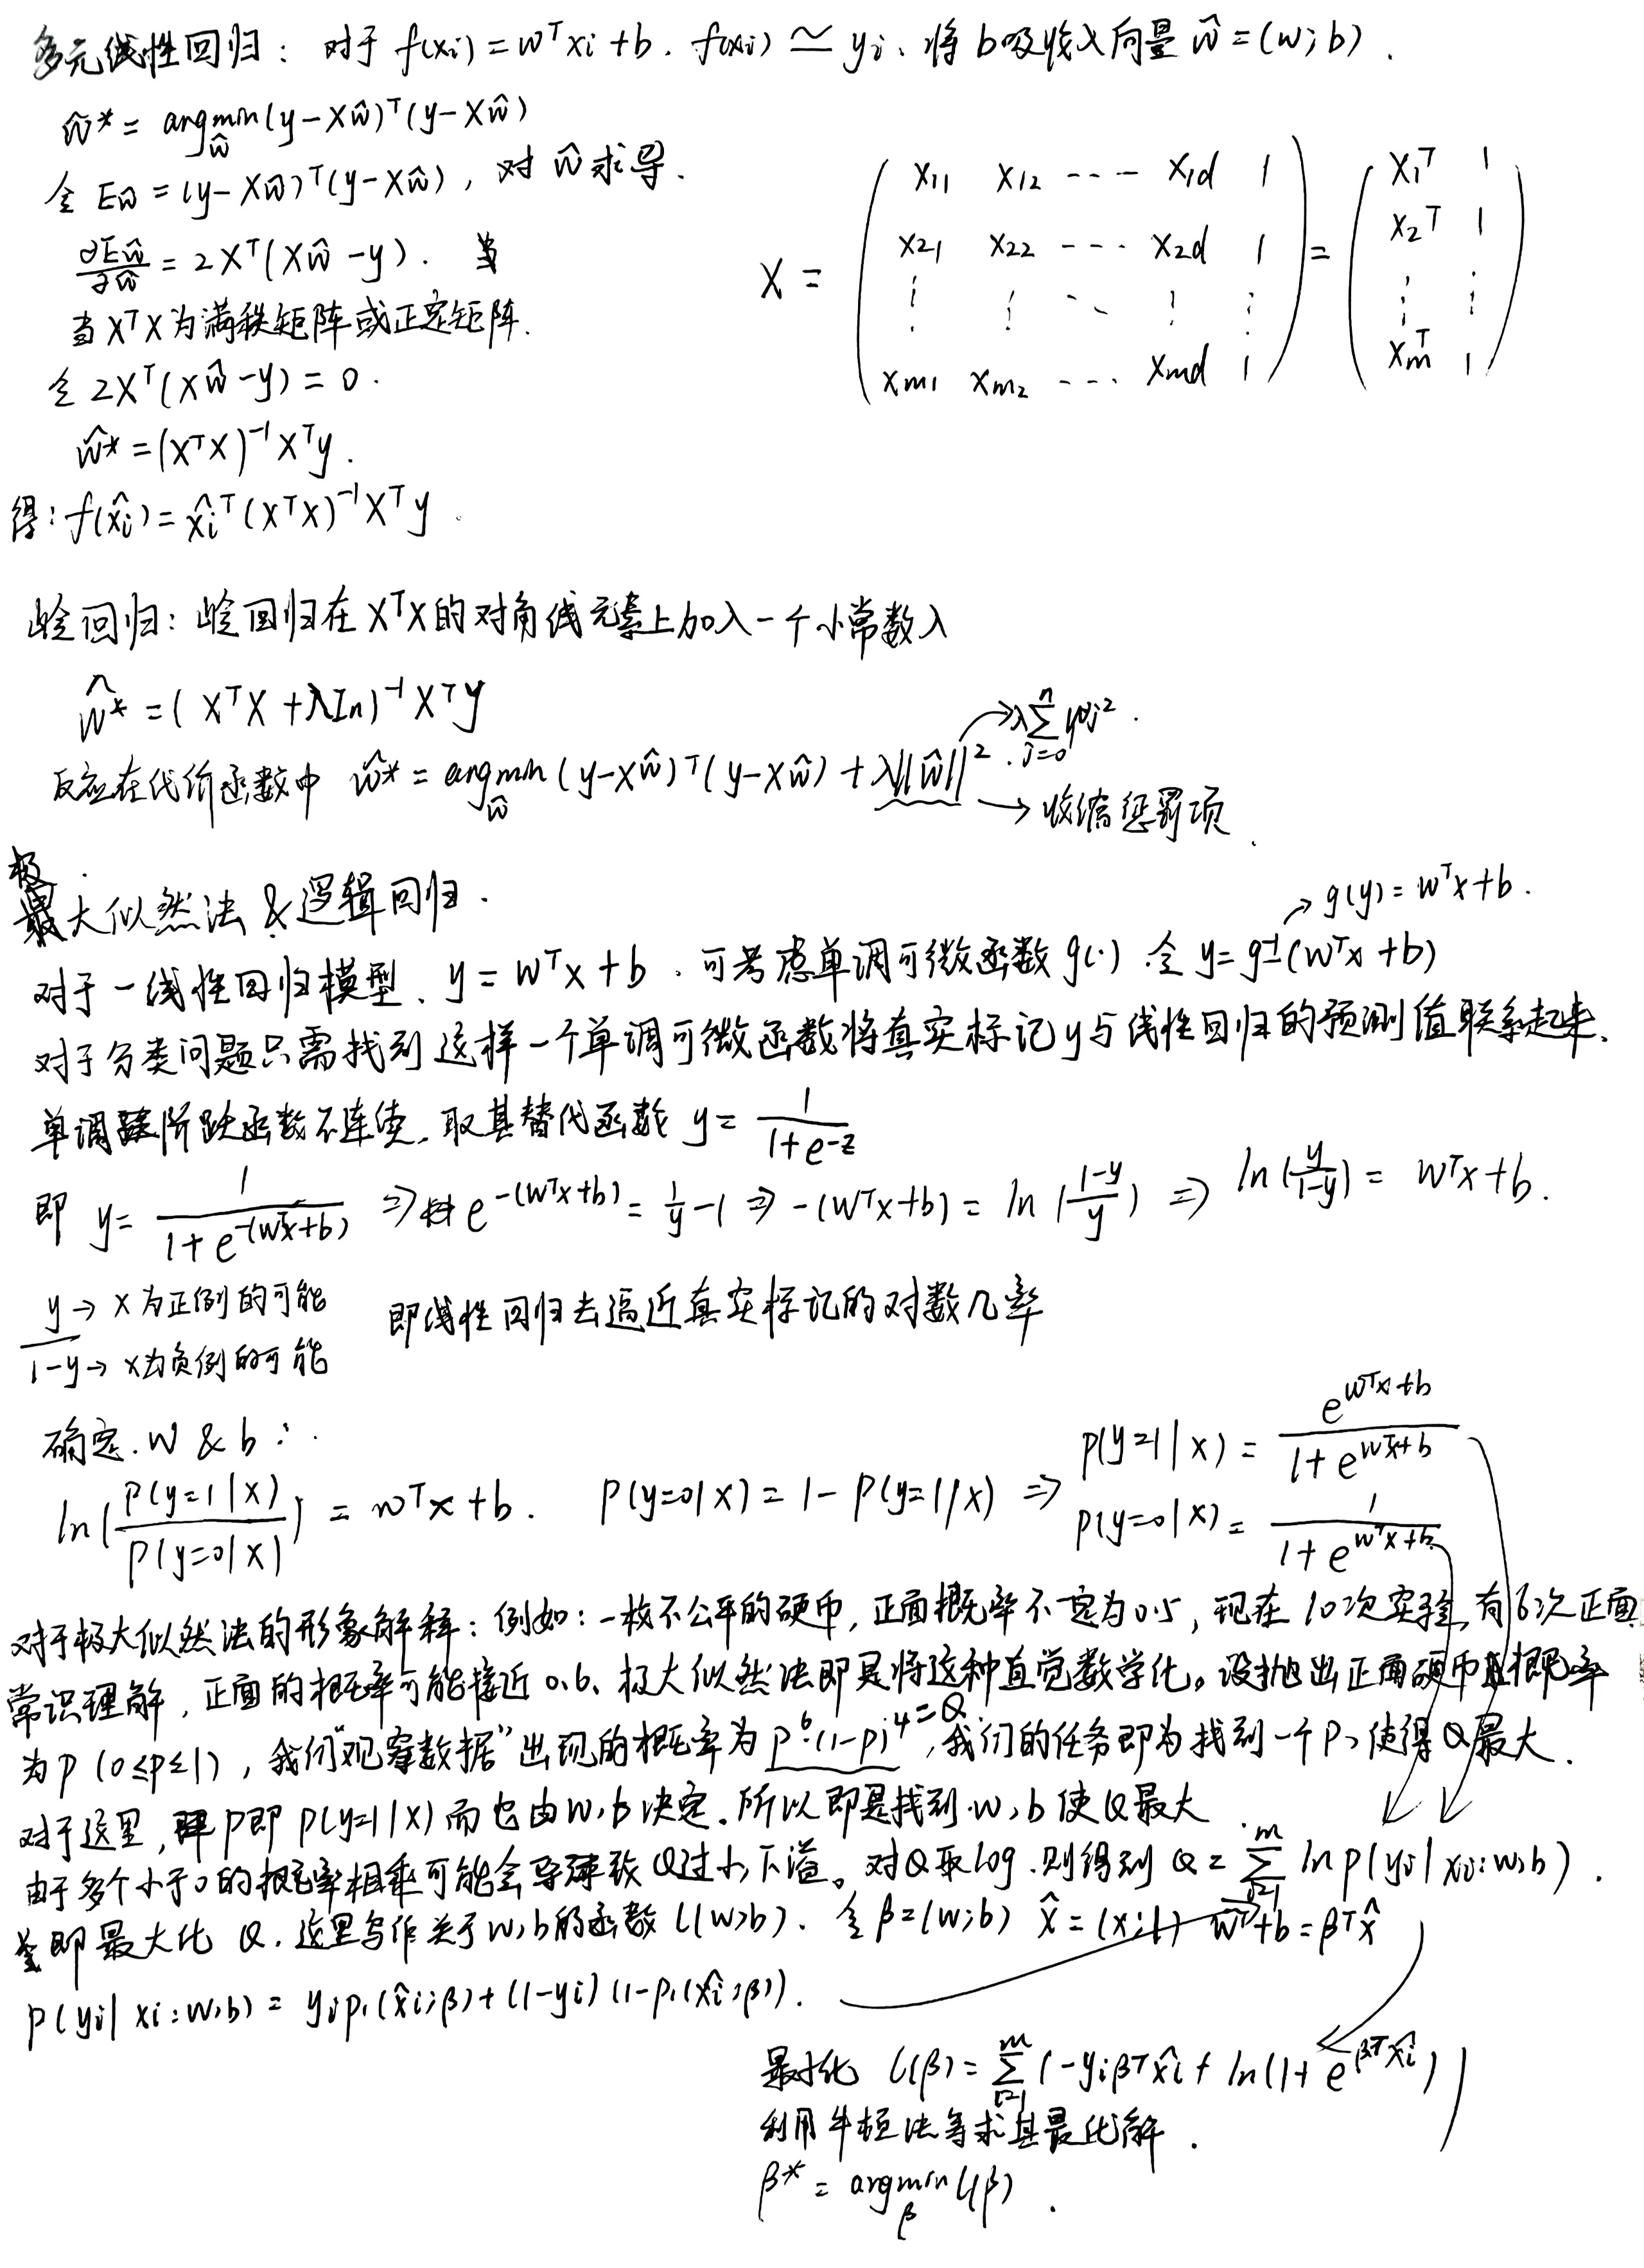 多元线性回归：对于 f(xi) = wᵀxi + b . f(xi) ≃ yi、将 b吸收入向量 ŵ = (w; b) .
ŵ* = argmin_ŵ (y - Xŵ)ᵀ(y - Xŵ)
令 Eŵ = (y - Xŵ)ᵀ(y - Xŵ) , 对 ŵ 求导.
∂Eŵ/∂ŵ = 2Xᵀ(Xŵ - y) . 当
当 XᵀX 为满秩矩阵或正定矩阵.
令 2Xᵀ(Xŵ - y) = 0 .
ŵ* = (XᵀX)⁻¹Xᵀy .
得: f(x̂i) = x̂iᵀ(XᵀX)⁻¹Xᵀy .
X = ( x11 x12 ---- x1d 1
x21 x22 --- x2d 1
⋮ ⋮ ⋱ ⋮ ⋮
xm1 xm2 --- xmd 1 ) = ( x1ᵀ 1
x2ᵀ 1
⋮ ⋮
xmᵀ 1 )
岭回归: 岭回归在 XᵀX 的对角线元素上加入一个小常数 λ
ŵ* = (XᵀX + λIn)⁻¹Xᵀy
反应在代价函数中 ŵ* = argmin_ŵ (y - Xŵ)ᵀ(y - Xŵ) + λ||ŵ||² .
→ λ∑_{j=0}^{n} wj² .
→ 收缩惩罚项 .
极大似然法 & 逻辑回归 .
→ g(y) = wᵀx + b .
对于一线性回归模型、y = wᵀx + b . 可考虑单调可微函数 g(·) . 令 y = g⁻¹(wᵀx + b)
对于分类问题只需找到这样一个单调可微函数将真实标记 y 与线性回归的预测值联系起来.
单调阶跃函数不连续, 取其替代函数 y = 1/(1 + e^-z)
即 y = 1/(1 + e^-(wᵀx+b)) ⇒ e^-(wᵀx+b) = 1/y - 1 ⇒ -(wᵀx+b) = ln((1-y)/y) ⇒ ln(y/(1-y)) = wᵀx + b .
y → x 为正例的可能
1-y → x 为负例的可能
即线性回归去逼近真实标记的对数几率
确定. w & b :
ln(P(y=1|x)/P(y=0|x)) = wᵀx + b . P(y=0|x) = 1 - P(y=1|x) ⇒
P(y=1|x) = e^(wᵀx+b)/(1 + e^(wᵀx+b))
P(y=0|x) = 1/(1 + e^(wᵀx+b))
对于极大似然法的形象解释: 例如: 一枚不公平的硬币, 正面概率不定为0.5, 现在10次实验, 有6次正面
常识理解, 正面的概率可能接近0.6、极大似然法即是将这种直觉数学化。设抛出正面硬币概率
为 P (0≤p≤1) , 我们"观察数据"出现的概率为 p⁶·(1-p)⁴ = Q , 我们的任务即为找到一个 P, 使得 Q 最大 .
对于这里, P即 P(y=1|x) 而它由 w,b 决定. 所以即是找到 w,b 使 Q 最大
由于多个小于0的概率相乘可能会导致Q过小, 下溢。对Q取log. 则得到 Q = ∑_{i=1}^{m} ln p(yi|xi; w,b) .
即最大化 Q . 这里写作关于 w,b 的函数 l(w,b) . 令 β = (w;b) x̂ = (x;1) wᵀ+b = βᵀx̂
p(yi|xi; w,b) = yi p₁(x̂i;β) + (1-yi)(1-p₁(x̂i;β)) .
最小化 l(β) = ∑_{i=1}^{m} (-yiβᵀx̂i + ln(1 + e^(βᵀx̂i)))
利用牛顿法等求其最优解 .
β* = argmin_β l(β) .